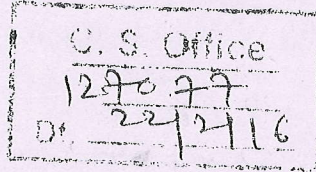 C. S. Office
127077
Dt 22/2/16